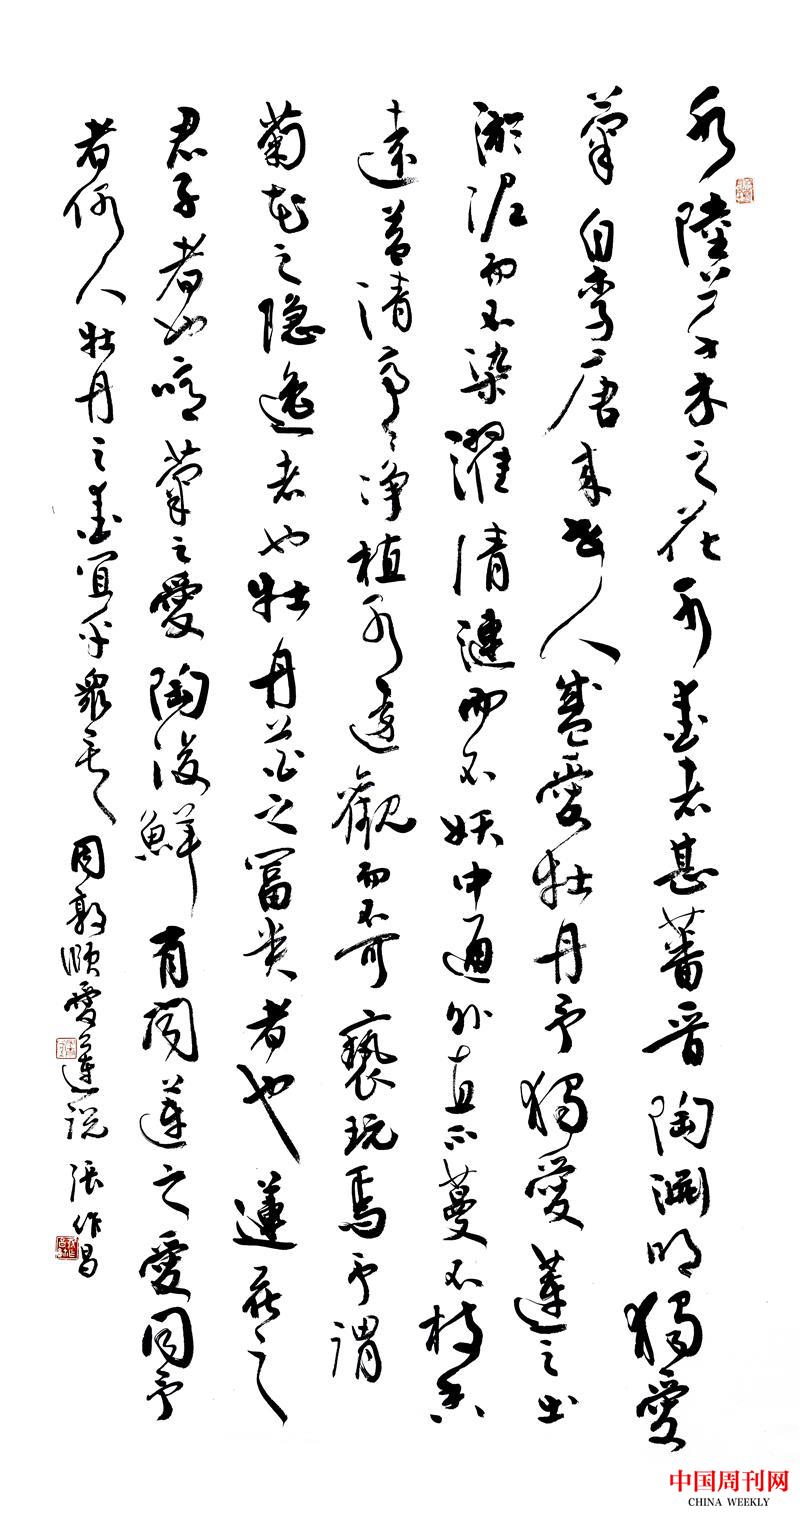 水陸草木之花可愛者甚蕃晋陶淵明獨愛
菊自李唐来世人盛愛牡丹予獨愛蓮之出
淤泥而不染濯清漣而不妖中通外直不蔓不枝香
遠益清亭〻净植可遠觀而不可褻玩焉予謂
菊花之隐逸者也牡丹花之富贵者也蓮花之
君子者也噫菊之愛陶後鮮有闻蓮之愛同予
者何人牡丹之愛宜乎衆矣 周敦颐愛蓮説 張作昌
中国周刊网
CHINA WEEKLY